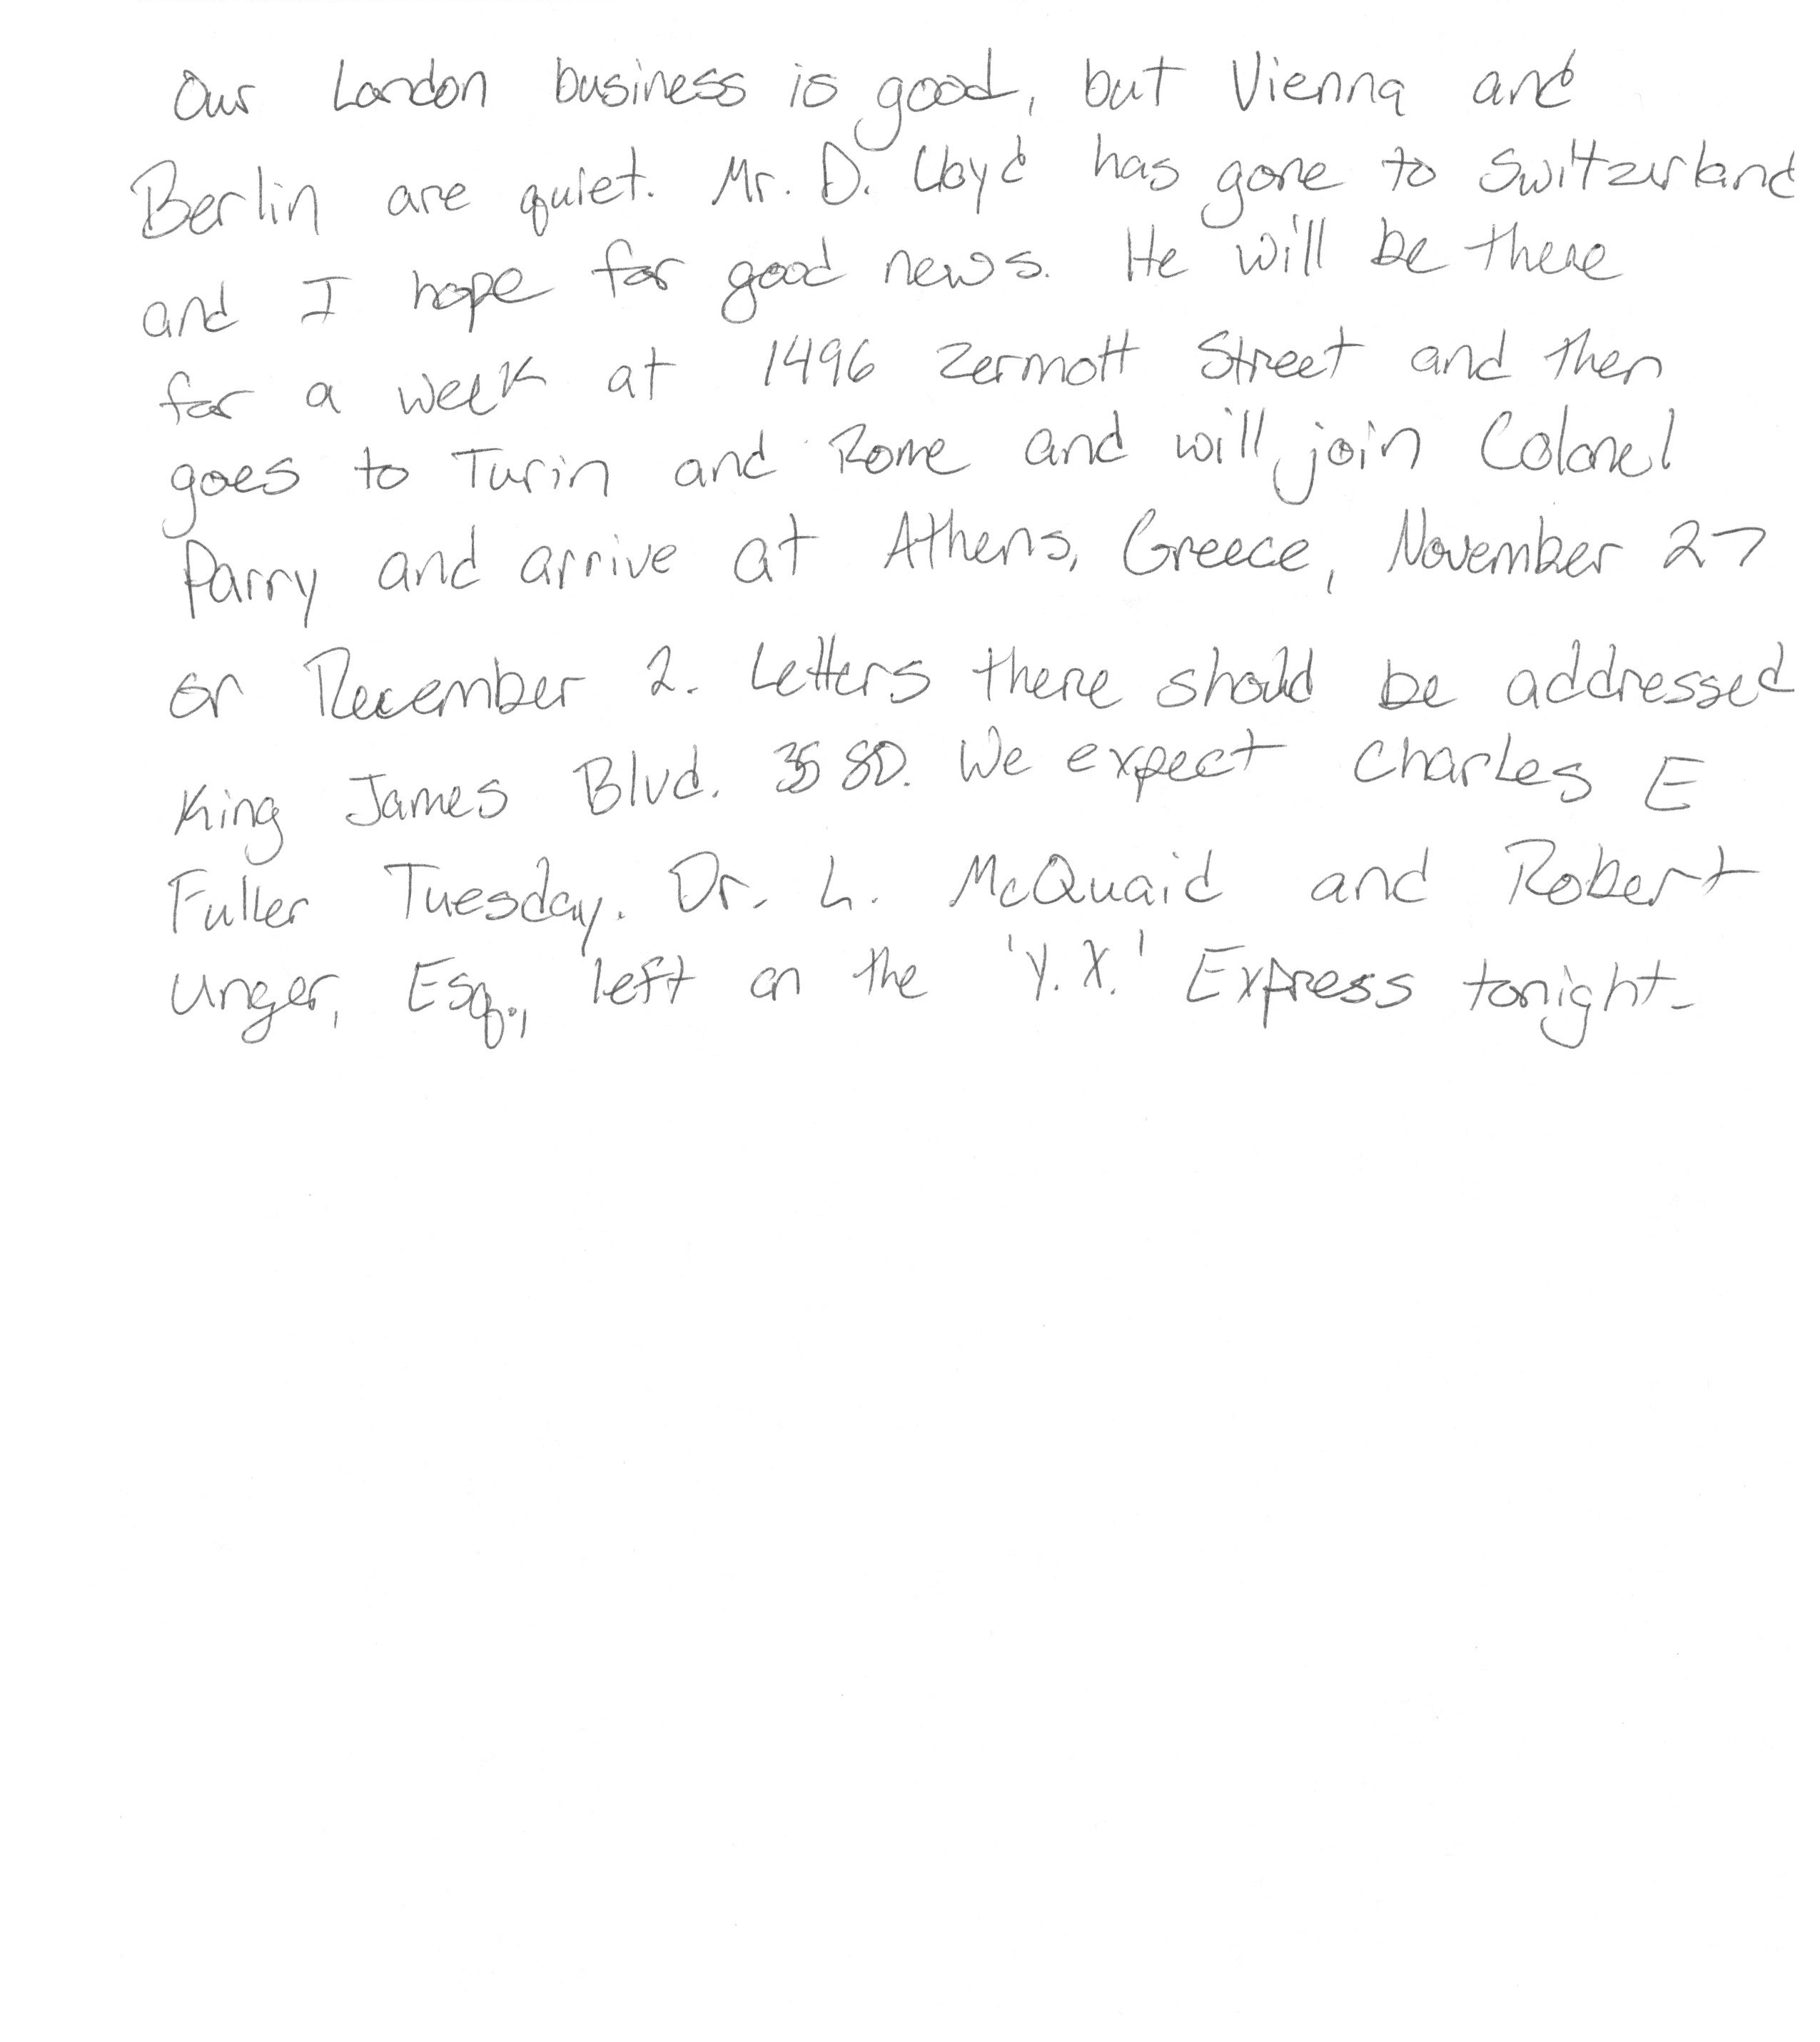 Our London business is good, but Vienna and
Berlin are quiet. Mr. D. Lloyd has gone to Switzerland
and I hope for good news. He will be there
for a week at 1496 Zermott Street and then
goes to Turin and Rome and will join Colonel
Parry and arrive at Athens, Greece, November 27
or December 2. Letters there should be addressed
King James Blvd. 3580. We expect Charles E
Fuller Tuesday. Dr. L. McQuaid and Robert
Unger, Esq., left on the 'Y.X.' Express tonight.